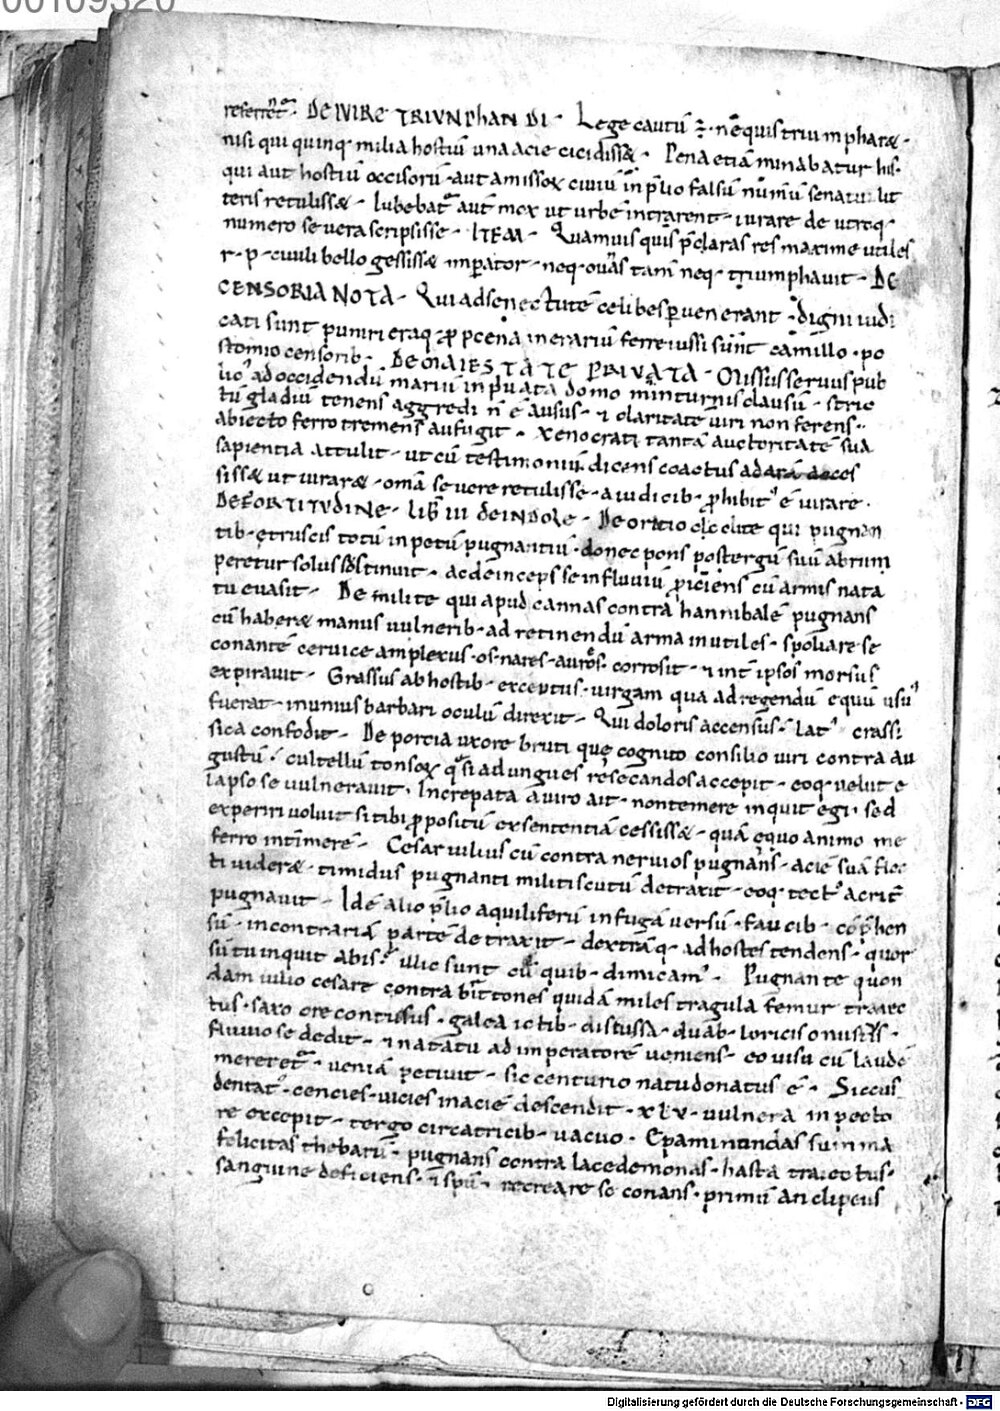 00109320
referret᷑· DE IVIRE TRIVNPhAN DI · Lege cautū ÷· neq̄uis triumpharæ·
nisi qui quinq· milia hostiū una acie cicidissæ · Pena etiā minabatur his·
qui aut hostiū occisorū · aut amissoꝝ ciuiū in p̄lio falsū numū senatui lit
teris retulissæ · Iubebat᷑ aut̄ mox ut urbē intrarent · iurare de utroq·
numero se uera scripsisse · ITEM · Quamuis quis p̄claras res maxime utiles
r · p · ciuili bello gessissæ imp̄ator · neq· ouās tam̄ neq· triumphauit · DE
CENSORIA NOTA · Qui ad senectutē celibes ꝑuenerant · digni iudi
cati sunt puniri eraq· ꝓ pcena in erariū ferre iussi sunt camillo · po
stomio censorib· DE MAIESTATE PRIVATA · Missus seruus pub
lic᷒ ad occidendū mariū in puata domo minturnis clausū · stric
tū gladiū tenens aggredi n̄ ē ausus · ⁊ claritate uiri non ferens ·
abiecto ferro tremens aufugit · Xenocrati tantā auctoritatē sua
sapientia attulit · ut cū testimoniū dicens coactus ad arā acces
sissæ ut iuraræ · omā se uere retulisse · a iudicib· ꝓhibit᷒ ē iurare ·
DE FORTITVDINE · LIB̄ III DE INDOLE · De oratio clo clite qui pugnan
tib· etruscis totū inpetū pugnantiū · donec pons postergū suū abrum
peretur solus sustinuit · ac deinceps se in fluuiū ꝓiciens cū armis nata
tu euasit · De milite qui apud cannas contra hannibalē pugnans
cū haberæ manus uulnerib· ad retinendū arma inutiles · spoliare se
conantē ceruice amplexus · os · nares · aures · corrosit · ⁊ int̄ ipsos morsus
expirauit · Grassus ab hostib· exceptus · uirgam qua ad regendū equū usu᷒
fuerat · in unius barbari oculū direxit · Qui doloris accensus · lat᷒ crassi
sica confodit · De porcia uxore bruti que cognito consilio uiri contra au
gustū · cultellū tonsoꝝ q̊si ad ungues resecandos accepit · eoq· uelut e
lapso se uulnerauit · Increpata a uiro ait · non temere inquit egi · sed
experiri uoluit si tibi ꝓpositū ex sententia cessissæ · quā equo animo me
ferro intimerē · Cesar iulius cū contra neruios pugnans · aciē suā flec
ti uideræ · timidus pugnanti militi scutū detraxit · eoq· tect᷒ acrit̄
pugnauit · Idē alio p̄lio aquiliferū in fugā uersū · faucib· cōp̄hen
sū · in contrariā partē detraxit · dextraq· ad hostes tendens · quor
sū tu inquit abis? illic sunt cū quib· dimicam᷒ · Pugnante quon
dam iulio cesare contra brit̄tones quidā miles tragula femur traiec
tus · saxo ore contusus · galea ictib· discussa · duab· loricis onustus ·
fluuio se dedit · ⁊ natatu ad imperatorē ueniens · eo uisu cū laudē
mereret᷑ · ueniā petiuit · sic centurionatu donatus ē · Siccus
dentat᷒ · cencies · uicies in aciē descendit · xlv · uulnera in pecto
re excepit · tergo circatricib· uacuo · Epaminundas summa
felicitas thebarū · pugnans contra lacedemonas · hasta traiectus ·
sanguine deficiens · ⁊ spū · recreare se conans · primū an clipeus
Digitalisierung gefördert durch die Deutsche Forschungsgemeinschaft - DFG